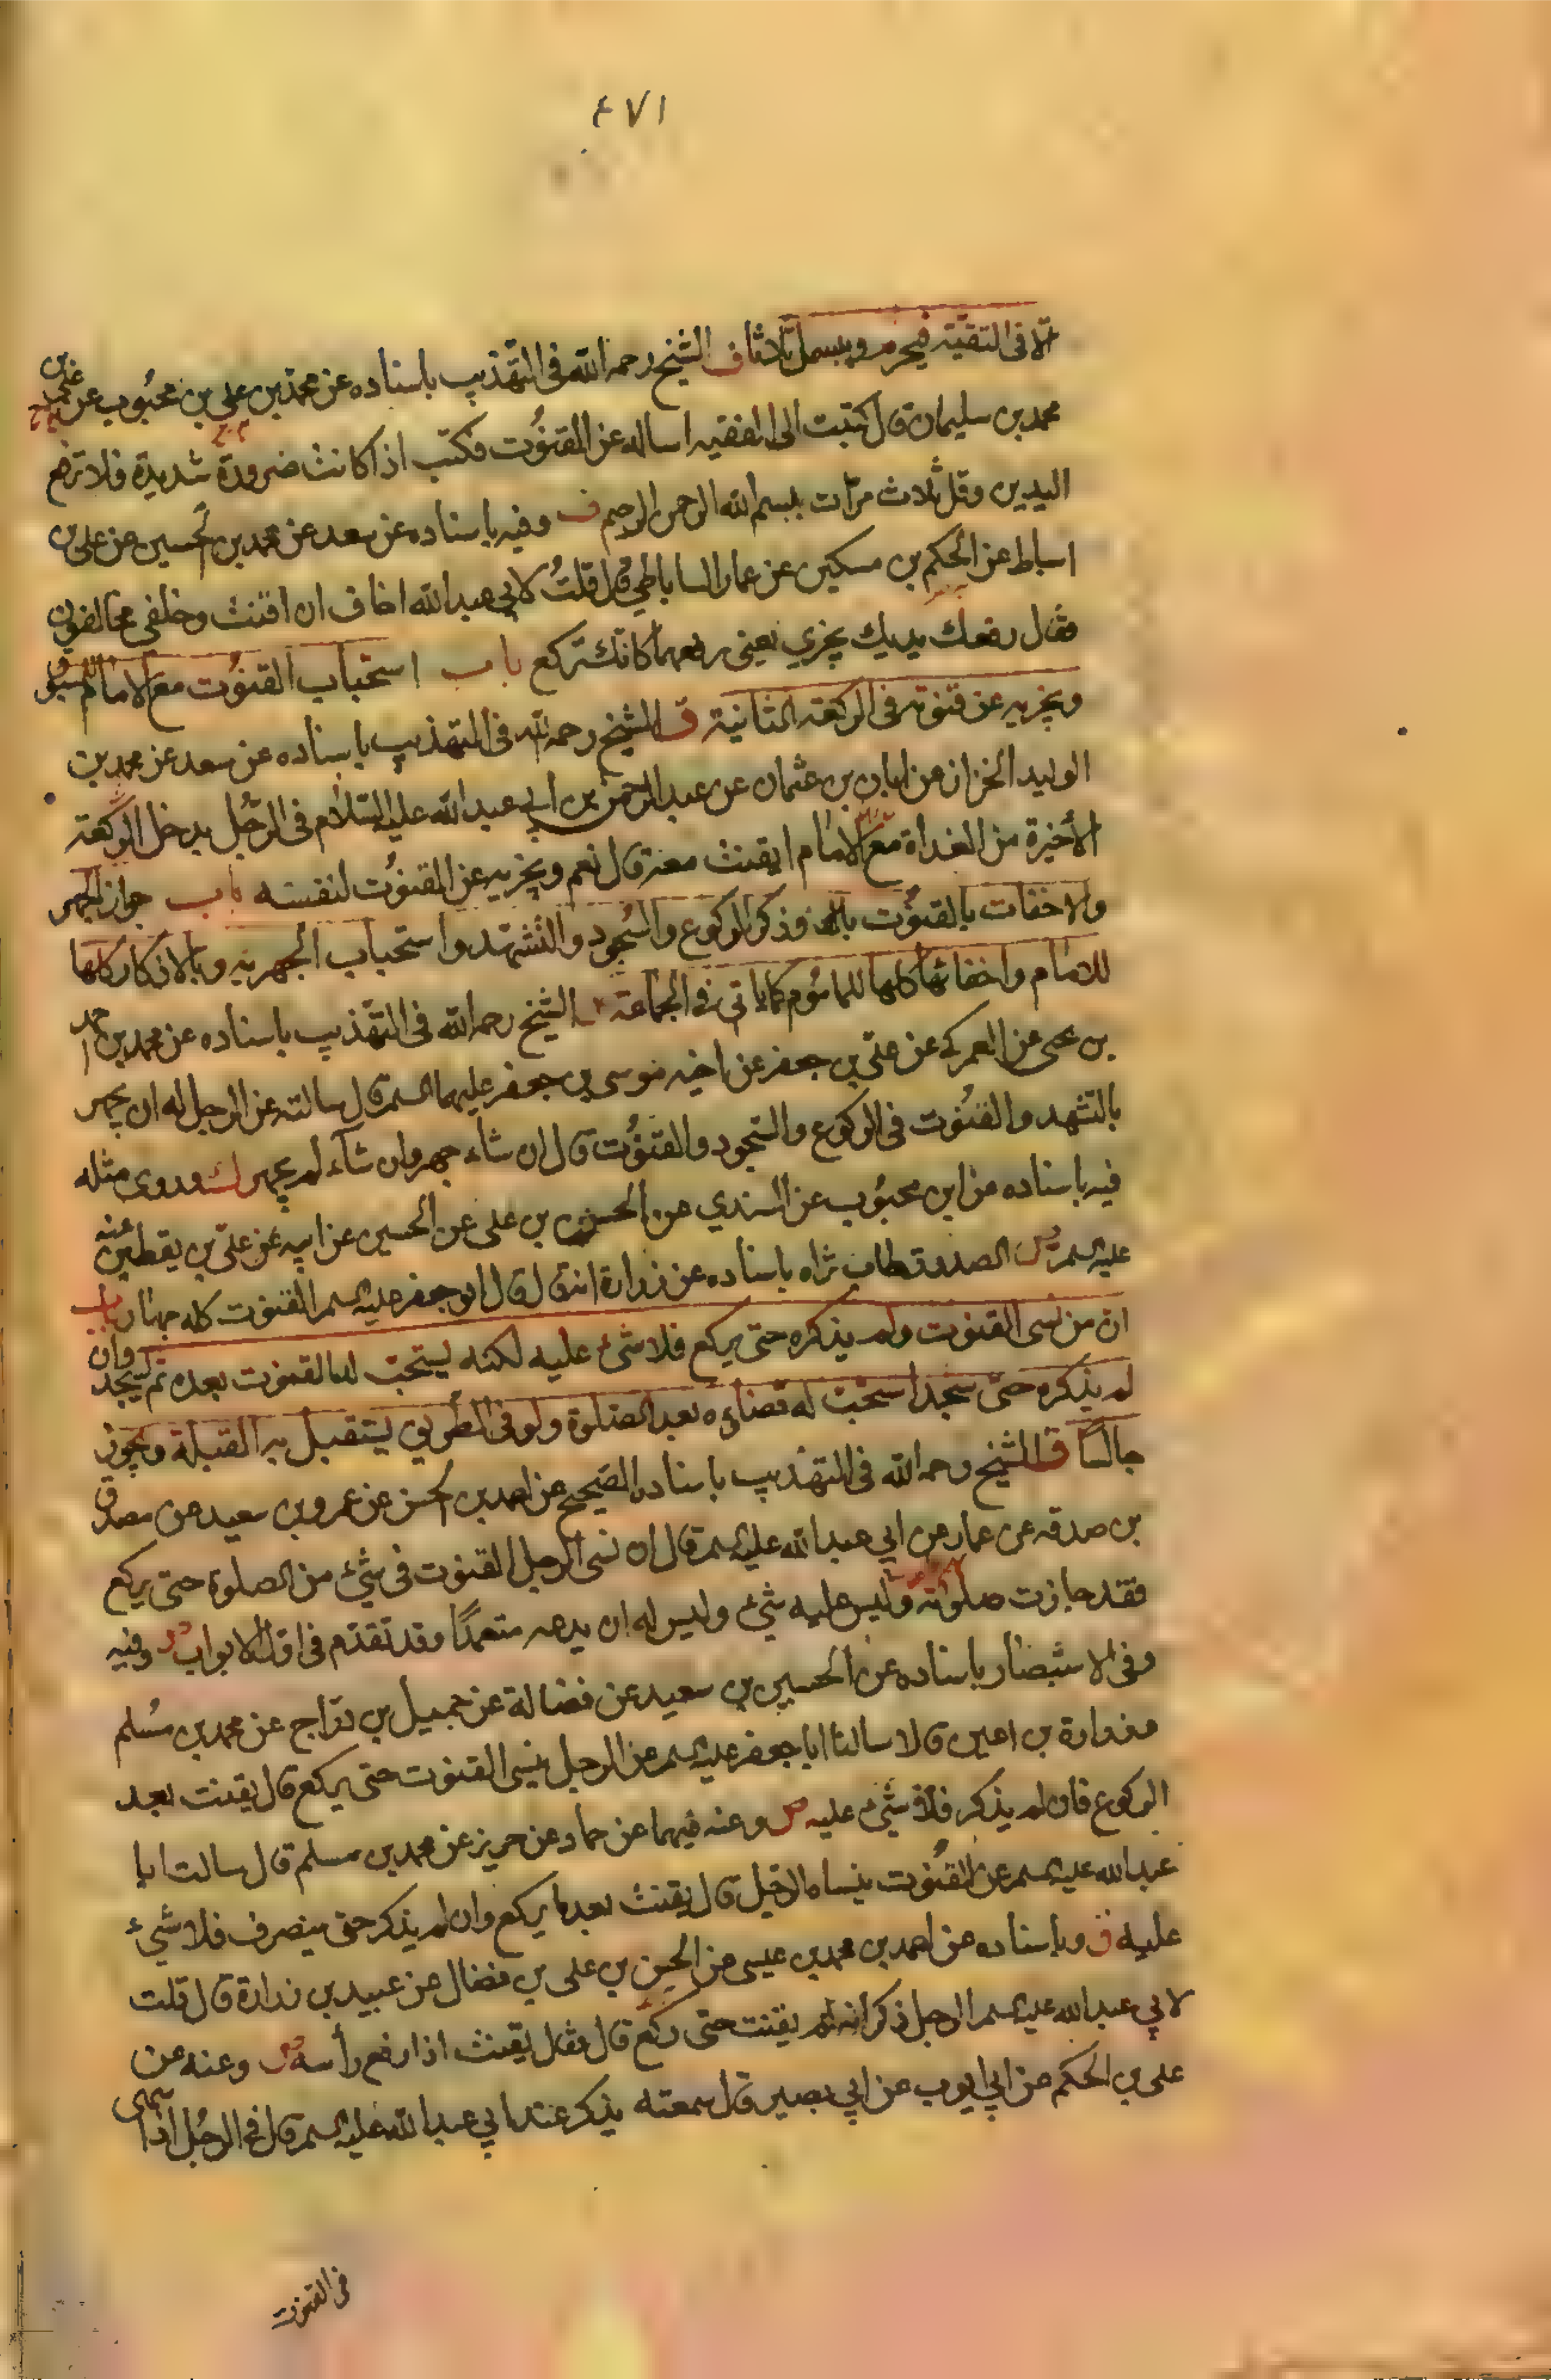 ٤٧١
الا فی التقیّة فیحرم ویبسمل ثلاثا ف الشیخ رحمه الله فی التهذیب باسناده عن محمد بن علی بن محبوب عن علی بن
محمد بن سلیمان قال کتبت الی الفقیه اساله عن القنوُت فکتب اذا کانت ضرورة شدیدة فلا ترفع
الیدین وقل ثلاث مرّات بسم الله الرحمن الرحیم ف وفیه باسناده عن سعد عن محمد بن الحسین عن علی بن
اسباط عن الحکم بن مسکین عن عمار الساباطی قال قلتُ لابی عبد الله اخاف ان اقنت وخلفی مخالفون
فقال رفعک یدیک یجزی یعنی رفعهما کانک ترکع باب استحباب القنوُت مع الامام للمسبوق
ویجزیه عن قنوته فی الرکعة الثانیة ق الشیخ رحمه الله فی التهذیب باسناده عن سعد عن محمد بن
الولید الخزاز عن ابان بن عثمان عن عبد الرحمن بن ابی عبد الله علیه السّلام فی الرّجُل یدخل الرکعة
الأخیرة من الغداة مع الامام ایقنت معه قال نعم ویجزیه عن القنوُت لنفسه باب جواز الجهر
والاخفات بالقنوُت وذکر الرکوع والسُجود والتشهّد واستحباب الجهر به وبالاذکار کلها
للامام واخفائها کلها للماموُم کما یاتی فی الجماعة الشیخ رحمه الله فی التهذیب باسناده عن محمد بن احمد
بن یحیی عن العمرکی عن علیّ بن جعفر عن اخیه موسی بن جعفر علیهما السلم قال سالته عن الرجل له ان یجهر
بالتشهد والقنوُت فی الرکوع والسّجود والقنوُت قال ان شاء جهر وان شآء لم یجهر ك وروی مثله
فیه باسناده عن ابن محبوُب عن السندی عن الحسن بن علی عن الحسین عن ابیه عن علیّ بن یقطین عنه
علیه السلم ص الصدوق طاب ثراه باسناده عن زرارة انه قال قال ابو جعفر علیه السلم القنوت کله جهار باب
انّ من نسی القنوت ولم یذکره حتی یرکع فلا شیء علیه لکنه یستحبّ له القنوت بعده ثم یسجد وان
لم یذکره حتّی سجد استحبّ له قضاؤه بعد الصّلوة ولو فی الطّریق یستقبل به القبلة ویجوز
جالسًا ق الشیخ رحمه الله فی التهذیب باسناده الصّحیح عن احمد بن الحسن عن عمرو بن سعید عن مصدّق
بن صدقه عن عمار عن ابی عبد الله علیه السلم قال ان نسی الرجل القنوت فی شیء من الصلوة حتی یرکع
فقد جازت صلوته ولیس علیه شیء ولیس له ان یدعه متعمدًا وقد تقدّم فی اوّل الابواب وفیه
وفی الاستبصار باسناده عن الحسین بن سعید عن فضالة عن جمیل بن درّاج عن محمد بن مُسلم
وزرارة بن اعین قالا سالنا ابا جعفر علیه السلم عن الرجل ینسی القنوت حتی یرکع قال یقنت بعد
الرکوع فان لم یذکر فلا شیء علیه ص وعنه فیهما عن حماد عن حریز عن محمد بن مسلم قال سالت ابا
عبد الله علیه السلم عن القنُوت ینساه الرجل قال یقنت بعد ما یرکع وان لم یذکر حتی ینصرف فلا شیء
علیه ق وباسناده عن احمد بن محمد بن عیسی عن الحسن بن علی بن فضال عن عبید بن زرارة قال قلت
لابی عبد الله علیه السلم الرجل ذکر انه لم یقنت حتی رکع قال فقال یقنت اذا رفع رأسه ص وعنه عن
علی بن الحکم عن ابی ایوب عن ابی بصیر قال سمعته یذکر عند ابی عبد الله علیه السلم قال فی الرجُل اذا سهی
فی القنوت